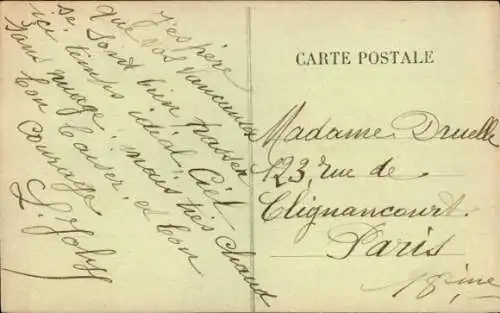 J'espère
que vos vacances
se sont bien passer
ici temps idéal, Ciel
sans nuage, mais très chaud
bon baiser, et bon
courage
CARTE POSTALE
Madame Druelle
123 rue de
Clignancourt.
Paris
18ème